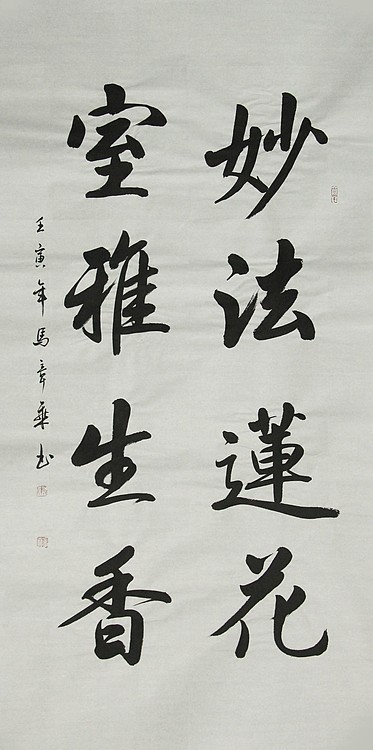 妙法蓮花
室雅生香
壬寅年馬章乘书